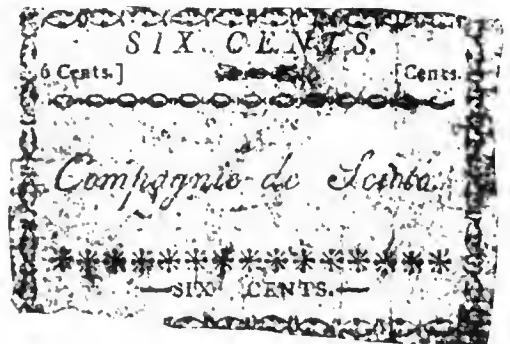 SIX CENTS.
6 Cents.] [Cents.
Compagnie de Scioto.
SIX CENTS.